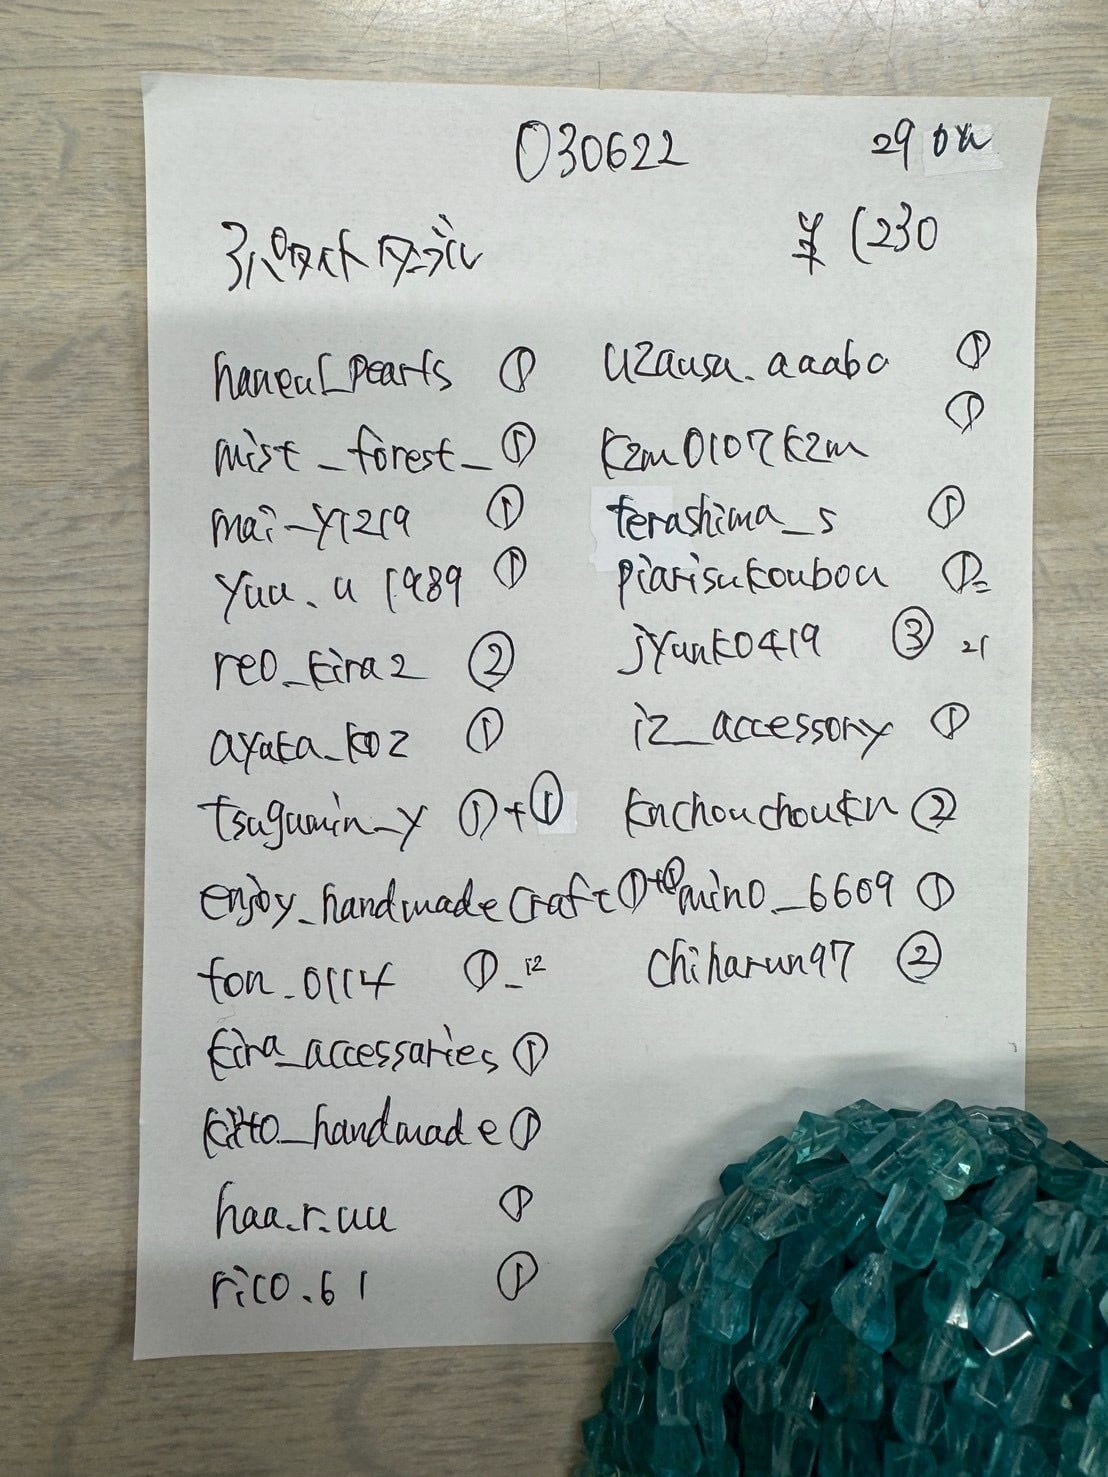 030622
¥1230
haneul_pearls ①
mist_forest_ ①
mai_y1219 ①
yuu.u1989 ①
reo_kira2 ②
ayaka_koz ①
tsugumin_y ①+①
enjoy_handmadecraft ①+①
fon_0114 ①-12
kira_accessaries ①
kito_handmade ①
haa.r.uu ①
rico.61 ①
uzausu.aaabo ①
kzm0107kzm ①
terashima_s ①
piarisukoubou ①=
jyunko419 ③ 21
iz_accessory ①
knchouchoukn ②
mino_6609 ①
chiharun97 ②